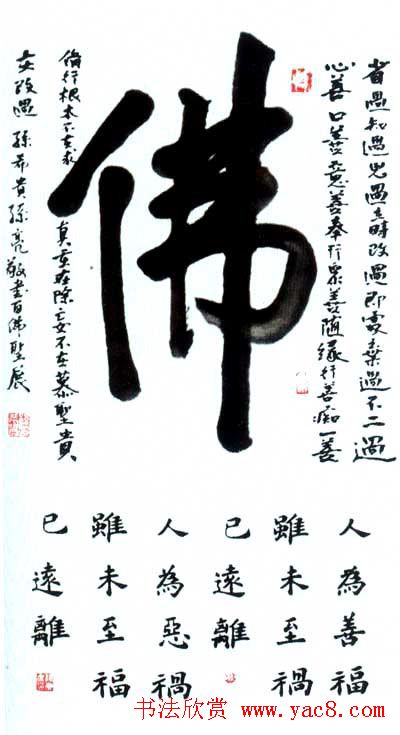 省過知過見過立時改過即處棄過不二過
心善口善意善奉行眾善隨緣行善痴一善
佛
修行根本不在求真重在除妄不在慕聖貴
在改過孫希貴孫亮敬書百佛聖展
人為善福
雖未至禍
已遠離
人為惡禍
雖未至福
已遠離
书法欣赏 www.yac8.com